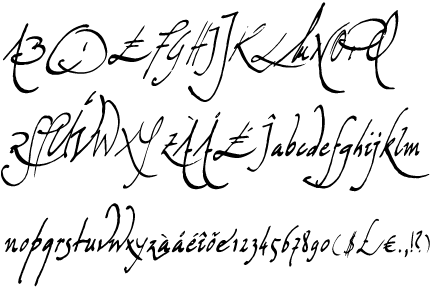 ABCDEFGHIJKLMNOPQ
RSTUVWXYZÀÁÉÎabcdefghijklm
nopqrstuvwxyzàáéîõø1234567890($£€.,!?)